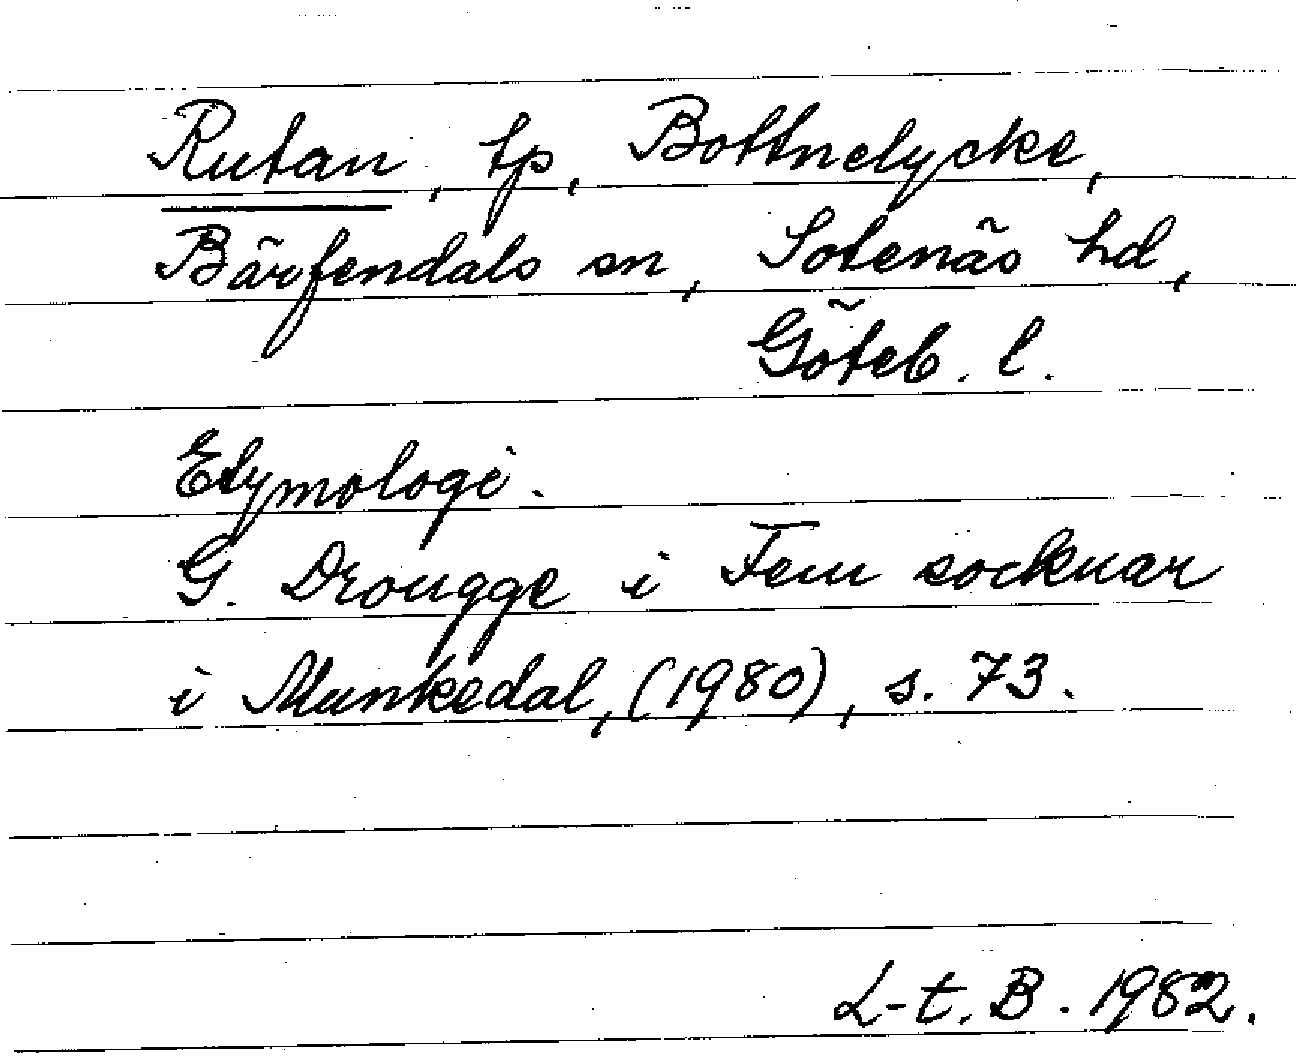 Rutan, tp, Bottnelycke,
Bärfendals sn, Sotenäs hd,
Göteb. l.
Etymologi.
G. Drougge i Fem socknar
i Munkedal, (1980), s. 73.
L-t. B. 1982.